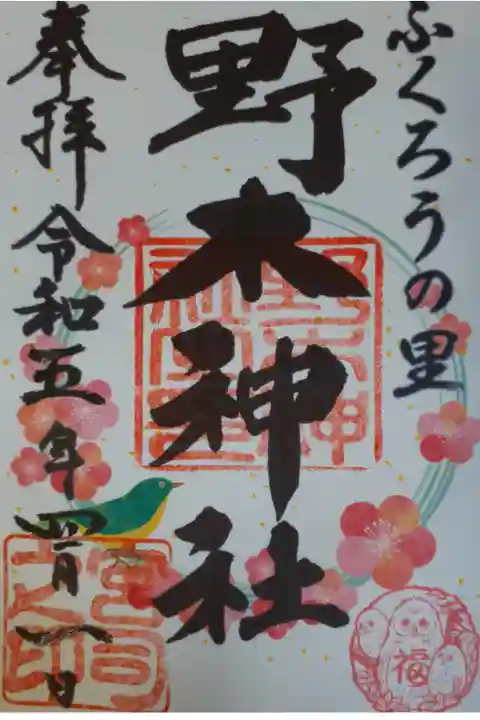 ふくろうの里
野木神社
奉拝 令和五年四月一日
福